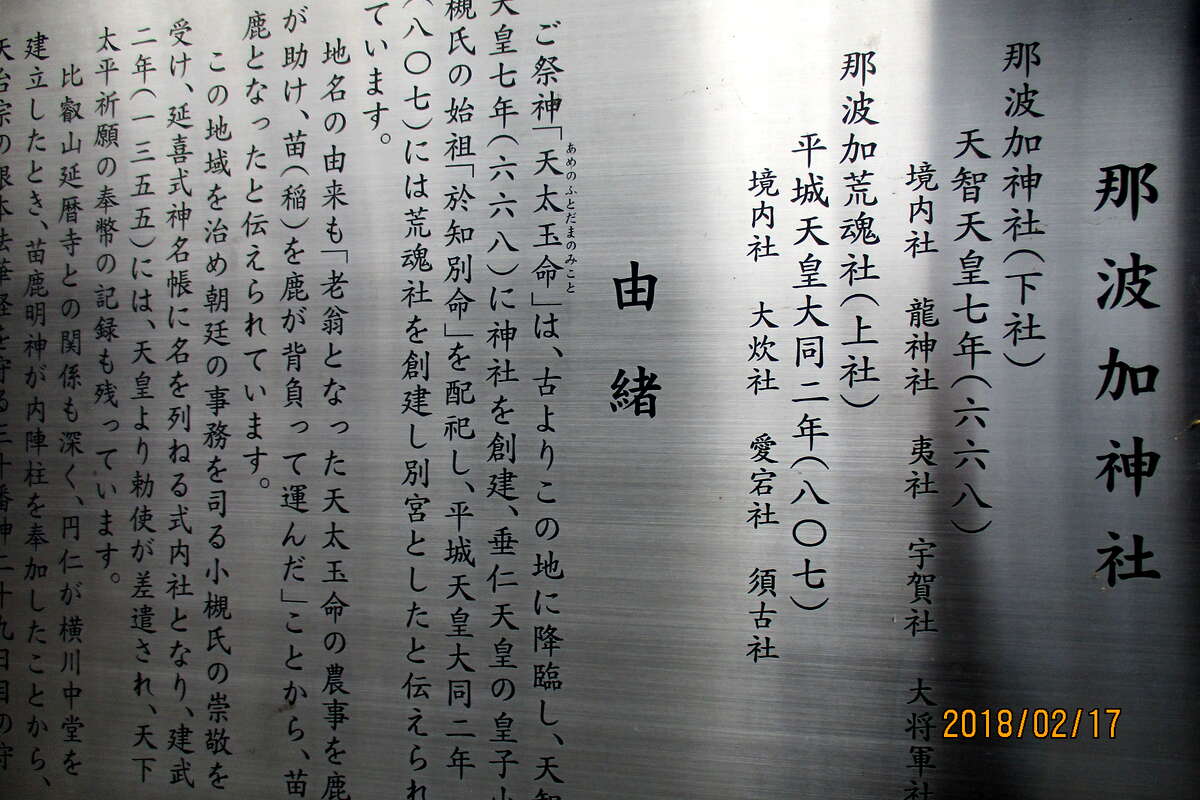 那波加神社
那波加神社(下社)
天智天皇七年(六六八)
境内社 龍神社 夷社 宇賀社 大将軍社
那波加荒魂社(上社)
平城天皇大同二年(八〇七)
境内社 大炊社 愛宕社 須古社
由緒
あめのふとだまのみこと
ご祭神「天太玉命」は、古よりこの地に降臨し、天智
天皇七年(六六八)に神社を創建、垂仁天皇の皇子小
槻氏の始祖「於知別命」を配祀し、平城天皇大同二年
(八〇七)には荒魂社を創建し別宮としたと伝えられ
ています。
地名の由来も「老翁となった天太玉命の農事を鹿
が助け、苗(稲)を鹿が背負って運んだ」ことから、苗
鹿となったと伝えられています。
この地域を治め朝廷の事務を司る小槻氏の崇敬を
受け、延喜式神名帳に名を列ねる式内社となり、建武
二年(一三五五)には、天皇より勅使が差遣され、天下
太平祈願の奉幣の記録も残っています。
比叡山延暦寺との関係も深く、円仁が横川中堂を
建立したとき、苗鹿明神が内陣柱を奉加したことから、
天台宗の根本法華経を守る三十番神二十九日目の守
2018/02/17